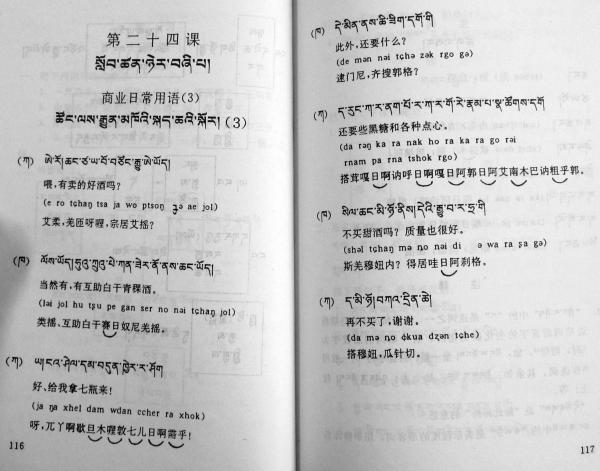 第二十四课
སློབ་ཚན་ཉེར་བཞི་པ།
商业日常用语(3)
ཚོང་ལས་རྒྱུན་མཁོའི་སྐད་ཆའི་སྐོར། (3)
(ཀ) ཨེ་རོ།ཆང་ཙ་ཡ་བོ་བཙོང་རྒྱུ་ཨེ་ཡོད།
喂,有卖的好酒吗?
(e ro tɕhaŋ tsa ja wo ptsoŋ ʒə ae jol)
艾柔,羌匝呀喔,宗居艾摇?
(ཁ) ལོས་ཡོད།ཧུ་ཧྲུའུ་པེ་ཀན་ཟེར་ནོ་ནས་ཆང་ཡོད།
当然有,有互助白干青稞酒。
(lɵi jol hu tʂu pe gan ser no nai tɕhaŋ jol)
类摇、互助白干赛日奴尼羌摇。
(ཀ) ཡ།ངའ་ཤེལ་དམ་བདུན་ཁྱེར་ར་ཤོག
好、给我拿七瓶来!
(ja ŋa xhel dam wdan ccher ra xhok)
呀,兀丫啊歇旦木喔敦七儿日啊蒿乎!
116
(ཁ) དེ་མིན་ནས་ཆི་ཟིག་དགོ་གི
此外,还要什么?
(de mən nai tɕhə zək rgo gə)
逮门尼,齐搜郭格?
(ཀ) ད་རུང་ཀ་ར་ནག་པོ་ར་ཀ་ར་གོ་རེ་རྣམ་པ་སྣ་ཚོགས་དགོ
还要些黑糖和各种点心。
(da rəŋ ka ra nak ho ra ka ra go rəi
rnam pa rna tshok rgo)
搭茸嘎日啊讷呼日啊嘎日阿郭日阿艾南木巴讷粗乎郭。
(ཁ) སིལ་ཆང་མི་ཉོ་ནིས།དེའི་རྒྱུ་བ་ར་ཧྲ་གི
不买甜酒吗? 质量也很好。
(shəl tɕhaŋ mə ȵo nəi di ə wa ra ʂa gə)
斯羌穆妞内? 得居哇日阿刹格。
(ཀ) ད་མི་ཉོ།བཀའ་དྲིན་ཆེ།
再不买了,谢谢。
(da mə ȵo ɸkua dʐən tɕhe)
搭穆妞,瓜针切.
117